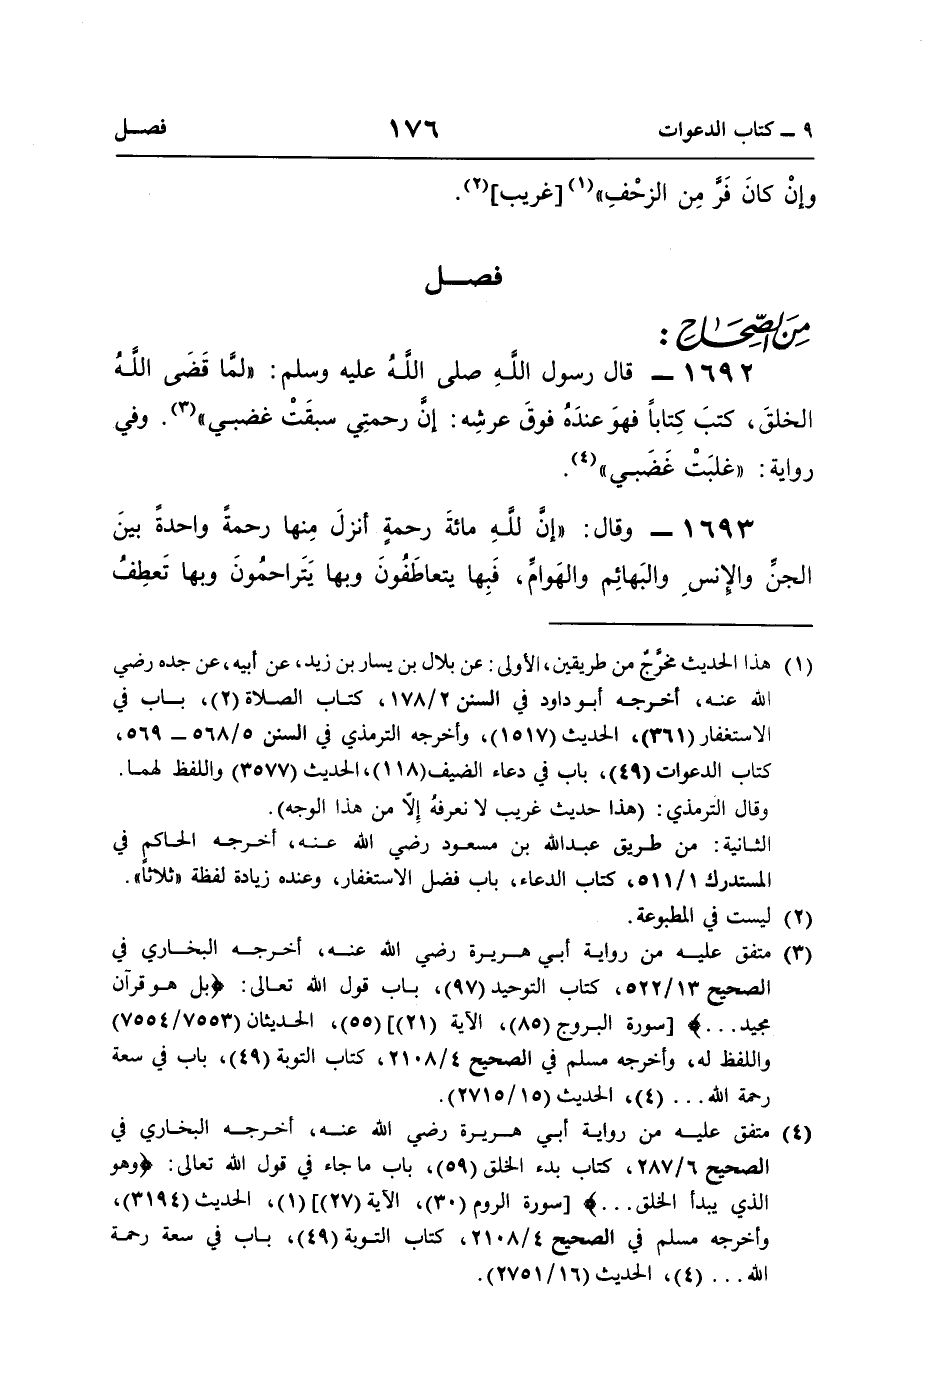 ٩ ــ كتاب الدعوات ١٧٦ فصــل
وإنْ كانَ فَرَّ مِن الزحْفِ»(١) [غريب](٢).
فصـــل
مِنَ الصِّحَاحِ:
١٦٩٢ ــ قال رسول اللَّهِ صلى اللَّهُ عليه وسلم: «لمَّا قَضَى اللَّهُ
الخلقَ، كتبَ كِتاباً فهوَ عندَهُ فوقَ عرشِه: إنَّ رحمتِي سبقَتْ غضبـي»(٣). وفي
رواية: «غلبَتْ غَضَبـي»(٤).
١٦٩٣ ــ وقال: «إنَّ للَّهِ مائةَ رحمةٍ أنزلَ مِنها رحمةً واحدةً بينَ
الجنِّ والإِنسِ والبَهائِم والهَوامِّ، فَبِها يتعاطَفُونَ وبها يَتَراحمُونَ وبها تَعطِفُ
(١) هذا الحديث مخرَّجٌ من طريقين، الأولى: عن بلال بن يسار بن زيد، عن أبيه، عن جده رضي
الله عنـه، أخـرجـه أبـو داود في السنن ١٧٨/٢، كتـاب الصـلاة (٢)، بـاب في
الاستغفار (٣٦١)، الحديث (١٥١٧)، وأخرجه الترمذي في السنن ٥٦٨/٥ ــ ٥٦٩،
كتاب الدعوات (٤٩)، باب في دعاء الضيف(١١٨)، الحديث (٣٥٧٧) واللفظ لهما.
وقال الترمذي: (هذا حديث غريب لا نعرفهُ إلاّ من هذا الوجه).
الثـانية: من طـريق عبـدالله بن مسعود رضي الله عنـه، أخـرجـه الحاكم في
المستدرك ٥١١/١، كتاب الدعاء، باب فضل الاستغفار، وعنده زيادة لفظة «ثلاثاً».
(٢) ليست في المطبوعة.
(٣) متفق عليـه من روايـة أبـي هـريـرة رضي الله عنـه، أخـرجـه البخـاري في
الصحيح ٥٢٢/١٣، كتاب التوحيد (٩٧)، بـاب قول الله تعـالى: ﴿بل هـو قرآن
مجيد...﴾ [سورة البـروج (٨٥)، الآية (٢١)] (٥٥)، الحـديثان (٧٥٥٤/٧٥٥٣)
واللفظ له، وأخرجه مسلم في الصحيح ٢١٠٨/٤، كتاب التوبة (٤٩)، باب في سعة
رحمة الله... (٤)، الحديث (٢٧١٥/١٥).
(٤) متفق عليـه من روايـة أبـي هـريـرة رضي الله عنـه، أخـرجـه البخـاري في
الصحيح ٢٨٧/٦، كتاب بدء الخلق (٥٩)، باب ما جاء في قول الله تعالى: ﴿وهو
الذي يبدأ الخلق...﴾ [سورة الروم (٣٠)، الآية (٢٧)] (١)، الحديث (٣١٩٤)،
وأخرجه مسلم في الصحيح ٢١٠٨/٤، كتاب التـوبة (٤٩)، بـاب في سعة رحمـة
الله... (٤)، الحديث (٢٧٥١/١٦).